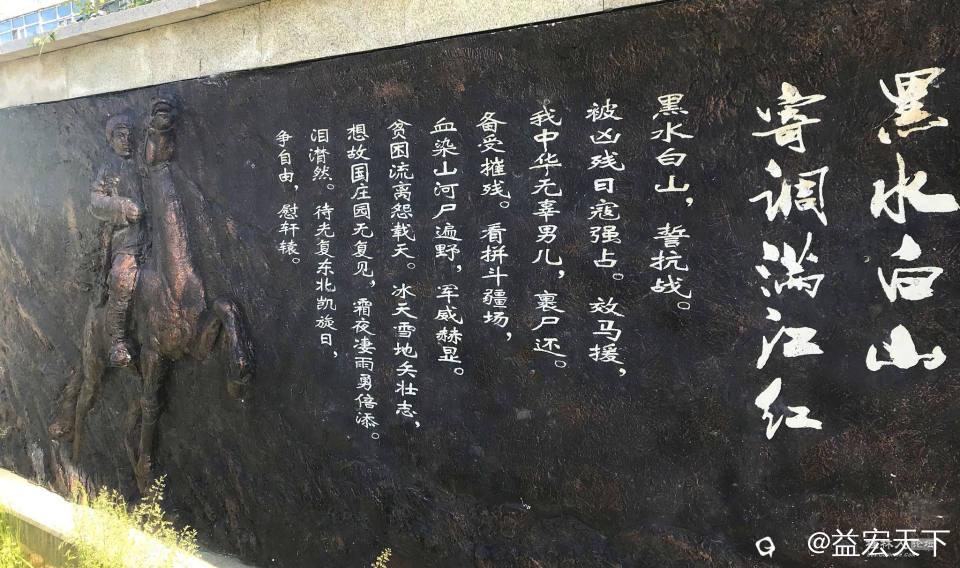 黑水白山
寄调满江红
黑水白山，誓抗战。
被凶残日寇强占。效马援，
我中华无辜男儿，裹尸还。
备受摧残。看拼斗疆场，
血染山河尸遍野，军威赫显。
贫困流离怨载天。冰天雪地矢壮志，
想故国庄园无复见，霜夜凄雨勇倍添。
泪潸然。待光复东北凯旋日，
争自由，慰轩辕。
@益宏天下